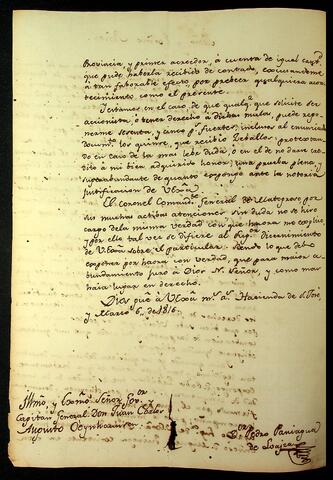 Provincia, y primer acreedor, à cuenta de igual cant.
que pude haberla recibido de contado, excusandome
a tan faborable efecto por preber qualquiera acon
tecimiento como el presente.
Y estamos en el caso, de que qualq.a que solicite ser
accionista, ó tener derecho a dichas mulas, puede repo-
nerme sesenta, y cinco p.s fuertes; inclusos al enunciado
los quinse, que recibió Zeballos, protextan
do en caso de la mas lebe duda, ó en el de no darse cre
dito á mi bien adquirido honor; una prueba plena, y
superabundante de quanto expongo ante la notoria
justificacion de
El Coronel Comand. General de Matogroso por
sus muchas activas atenciones sin duda no se hiso
cargo dela misma verdad con que
y por ello tal ves se difiere al sup.or Dicernimiento
de sobre el particular: siendo lo que debo
exponer por haora con verdad, que para maior a-
bundamiento juro á Dios N. Señor, y como mas
haia lugar en derecho.
Dios gue á m.s a.s Hacienda de S. Jose
y Marzo 6,, de 1816,,
Illmo, y Exmo Señor Gov.or y
Capitan General Don Juan Carlos
Augusto Oeynhausen
Pedro Paniagua
de Loajsa